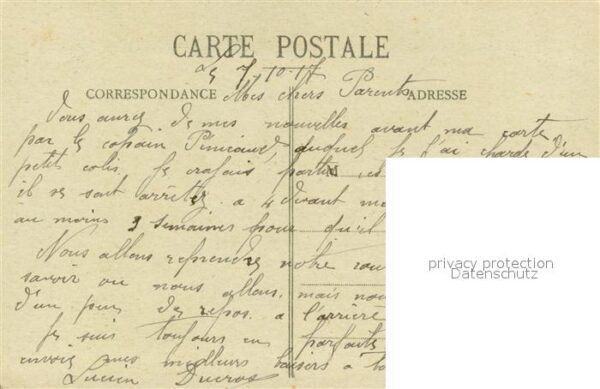 CARTE POSTALE
Le 7, 10-17
CORRESPONDANCE Mes chers Parents ADRESSE
Vous aurez de mes nouvelles avant ma carte
par le copain auquel je l'ai chargé d'un
petit colis. Je
il se sont arrêtés a 4 devant
au moins 3 semaines pour qu'il
Nous allons reprendre notre
savoir ou nous allons, mais
d'un jour de repos. a l'arrière
Je suis toujours en parfaite
envoie mes meilleurs baisers a
Lucien Ducros
privacy protection
Datenschutz